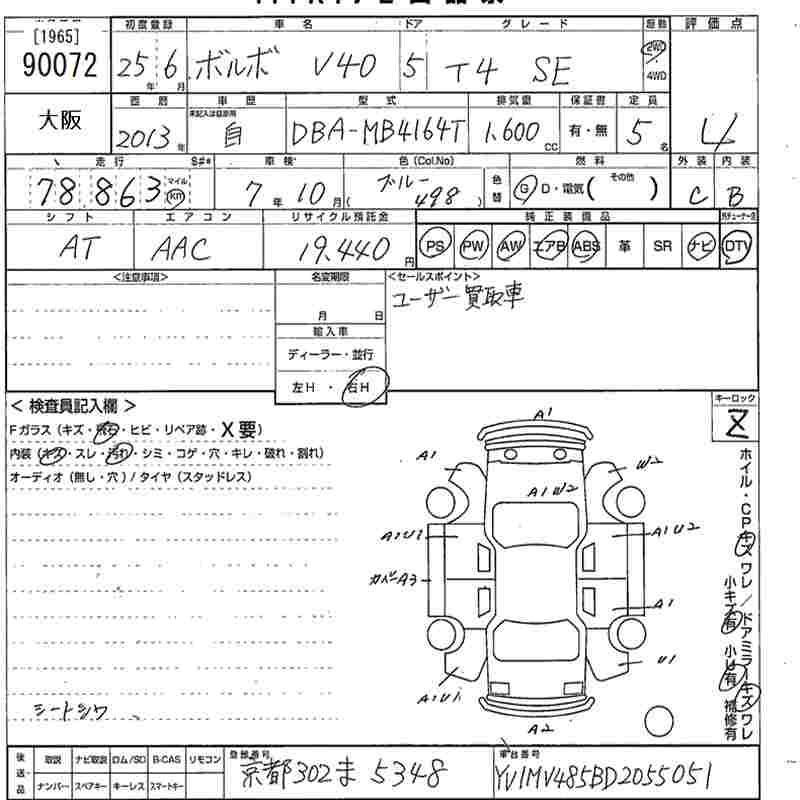 [1965]
90072
大阪
初度登録 車名 ドア グレード 駆動 評価点
25年 6月 ボルボ V40 5 T4 SE 2WD 4WD
4
西暦 車歴 型式 排気量 保証書 定員
未記入は自家用
2013年 自 DBA-MB4164T 1,600CC 有・無 5名
走行 S#* 車検 色(Col.No) 燃料 外装 内装
78863 マイル km 7年 10月 ブルー ( 498 ) 色替 G D・電気( その他 ) C B
シフト エアコン リサイクル預託金 純正装備品
AT AAC 19,440円 PS PW AW エアB ABS 革 SR ナビ DTV
<注意事項> 名変期限 <セールスポイント>
月 日 ユーザー買取車
輸入車
ディーラー・並行
左H・右H
< 検査員記入欄 > キーロック
Fガラス(キズ・飛石・ヒビ・リペア跡・X要) Z
内装(キズ・スレ・汚れ・シミ・コゲ・穴・キレ・破れ・割れ)
オーディオ(無し・穴)/タイヤ(スタッドレス)
A1
A1 W2
A1 W2
A1U1 A1U2
カバーA3
A1
A1U1 U1
A2
シートシワ
ホイル・CPキズ ワレ/ドアミラーキズ ワレ
小キズ有 小U有 補修有
後送品 取説 ナビ取説 ロム/SD B-CAS リモコン
ナンバー スペアキー キーレス スマートキー
登録番号 京都302ま5348
車台番号 YV1MV485BD2055051